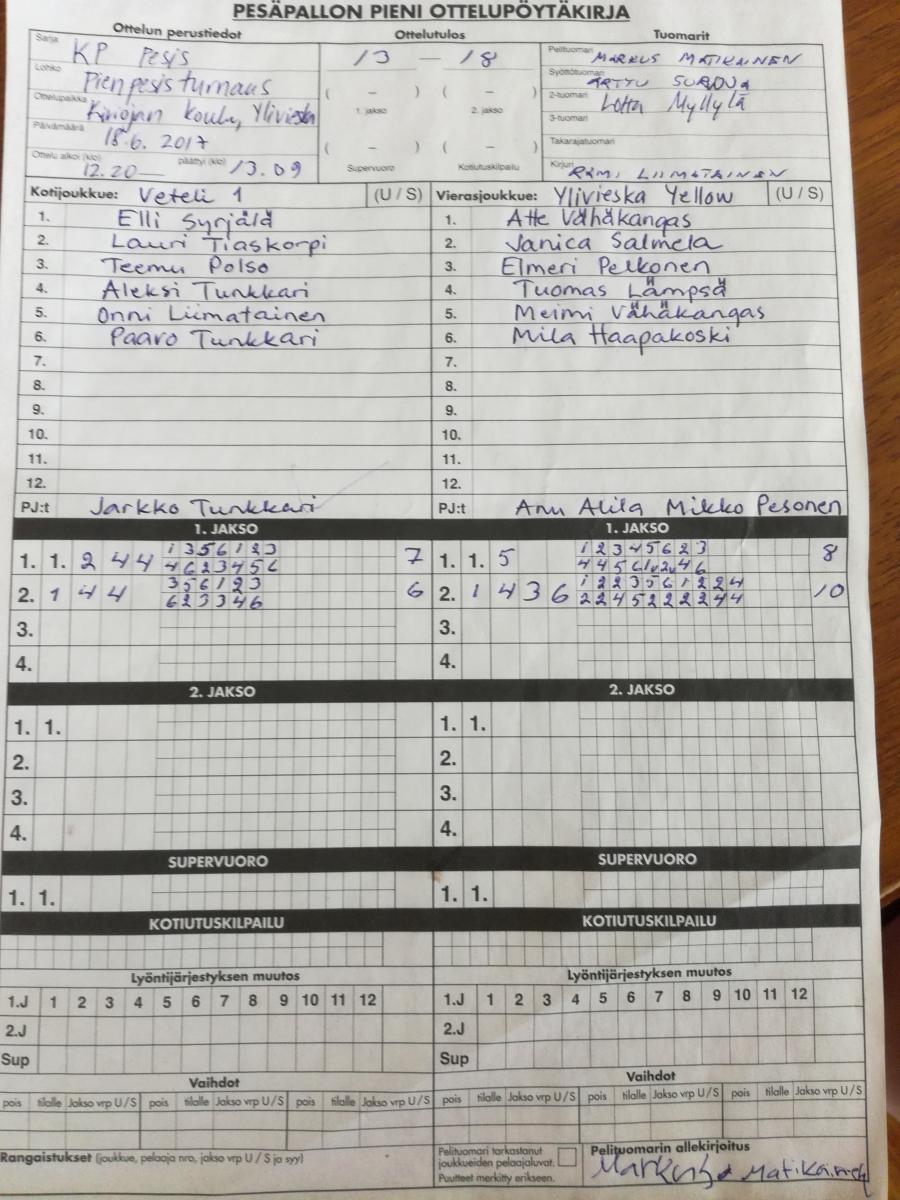 PESÄPALLON PIENI OTTELUPÖYTÄKIRJA
Ottelun perustiedot Ottelutulos Tuomarit
Sarja KP Pesis
13 — 18
Pelituomari MARKUS MATIKAINEN
Lohko Pienpesisturnaus
Syöttötuomari ARTTU
( – ) ( – )
2-tuomari Lotta Myllylä
Ottelupaikka koulu, Ylivieska
1. jakso 2. jakso
3-tuomari
Päivämäärä 18.6. 2017
Takarajatuomari
( – ) ( – )
Ottelu alkoi (klo) 12.20 — päättyi (klo) 13.09
Supervuoro Kotiutuskilpailu
Kirjuri RAMI LIIMATAINEN
Kotijoukkue: Veteli 1 (U / S)
Vierasjoukkue: Ylivieska Yellow (U / S)
1. Elli Syrjälä
1. Atte Vähäkangas
2. Lauri Tiaskorpi
2. Janica Salmela
3. Teemu Polso
3. Elmeri Pelkonen
4. Aleksi Tunkkari
4. Tuomas Lämpsä
5. Onni Liimatainen
5. Meimi Vähäkangas
6. Paavo Tunkkari
6. Mila Haapakoski
7. 7.
8. 8.
9. 9.
10. 10.
11. 11.
12. 12.
PJ:t Jarkko Tunkkari
PJ:t Anu Alila Mikko Pesonen
1. JAKSO 1. JAKSO
1. 1. 2 4 4 1 3 5 6 1 2 3 7
4 6 2 3 4 5 6
1. 1. 5 1 2 3 4 5 6 2 3 8
4 4 5 6 1v 2v 4 6
2. 1 4 4 3 5 6 1 2 3 6
6 2 3 3 4 6
2. 1 4 3 6 1 2 2 3 5 6 1 2 2 4 10
2 2 4 5 2 2 2 2 4 4
3. 3.
4. 4.
2. JAKSO 2. JAKSO
1. 1. 1. 1.
2. 2.
3. 3.
4. 4.
SUPERVUORO SUPERVUORO
1. 1. 1. 1.
KOTIUTUSKILPAILU KOTIUTUSKILPAILU
Lyöntijärjestyksen muutos Lyöntijärjestyksen muutos
1.J 1 2 3 4 5 6 7 8 9 10 11 12 1.J 1 2 3 4 5 6 7 8 9 10 11 12
2.J 2.J
Sup Sup
Vaihdot Vaihdot
pois tilalle Jakso vrp U / S pois tilalle Jakso vrp U / S pois tilalle Jakso vrp U / S pois tilalle Jakso vrp U / S pois tilalle Jakso vrp U / S pois tilalle Jakso vrp U / S
Rangaistukset (joukkue, pelaaja nro, jakso vrp U / S ja syy)
Pelituomari tarkastanut
joukkueiden pelaajaluvat.
Puutteet merkitty erikseen.
Pelituomarin allekirjoitus
Markus Matikainen